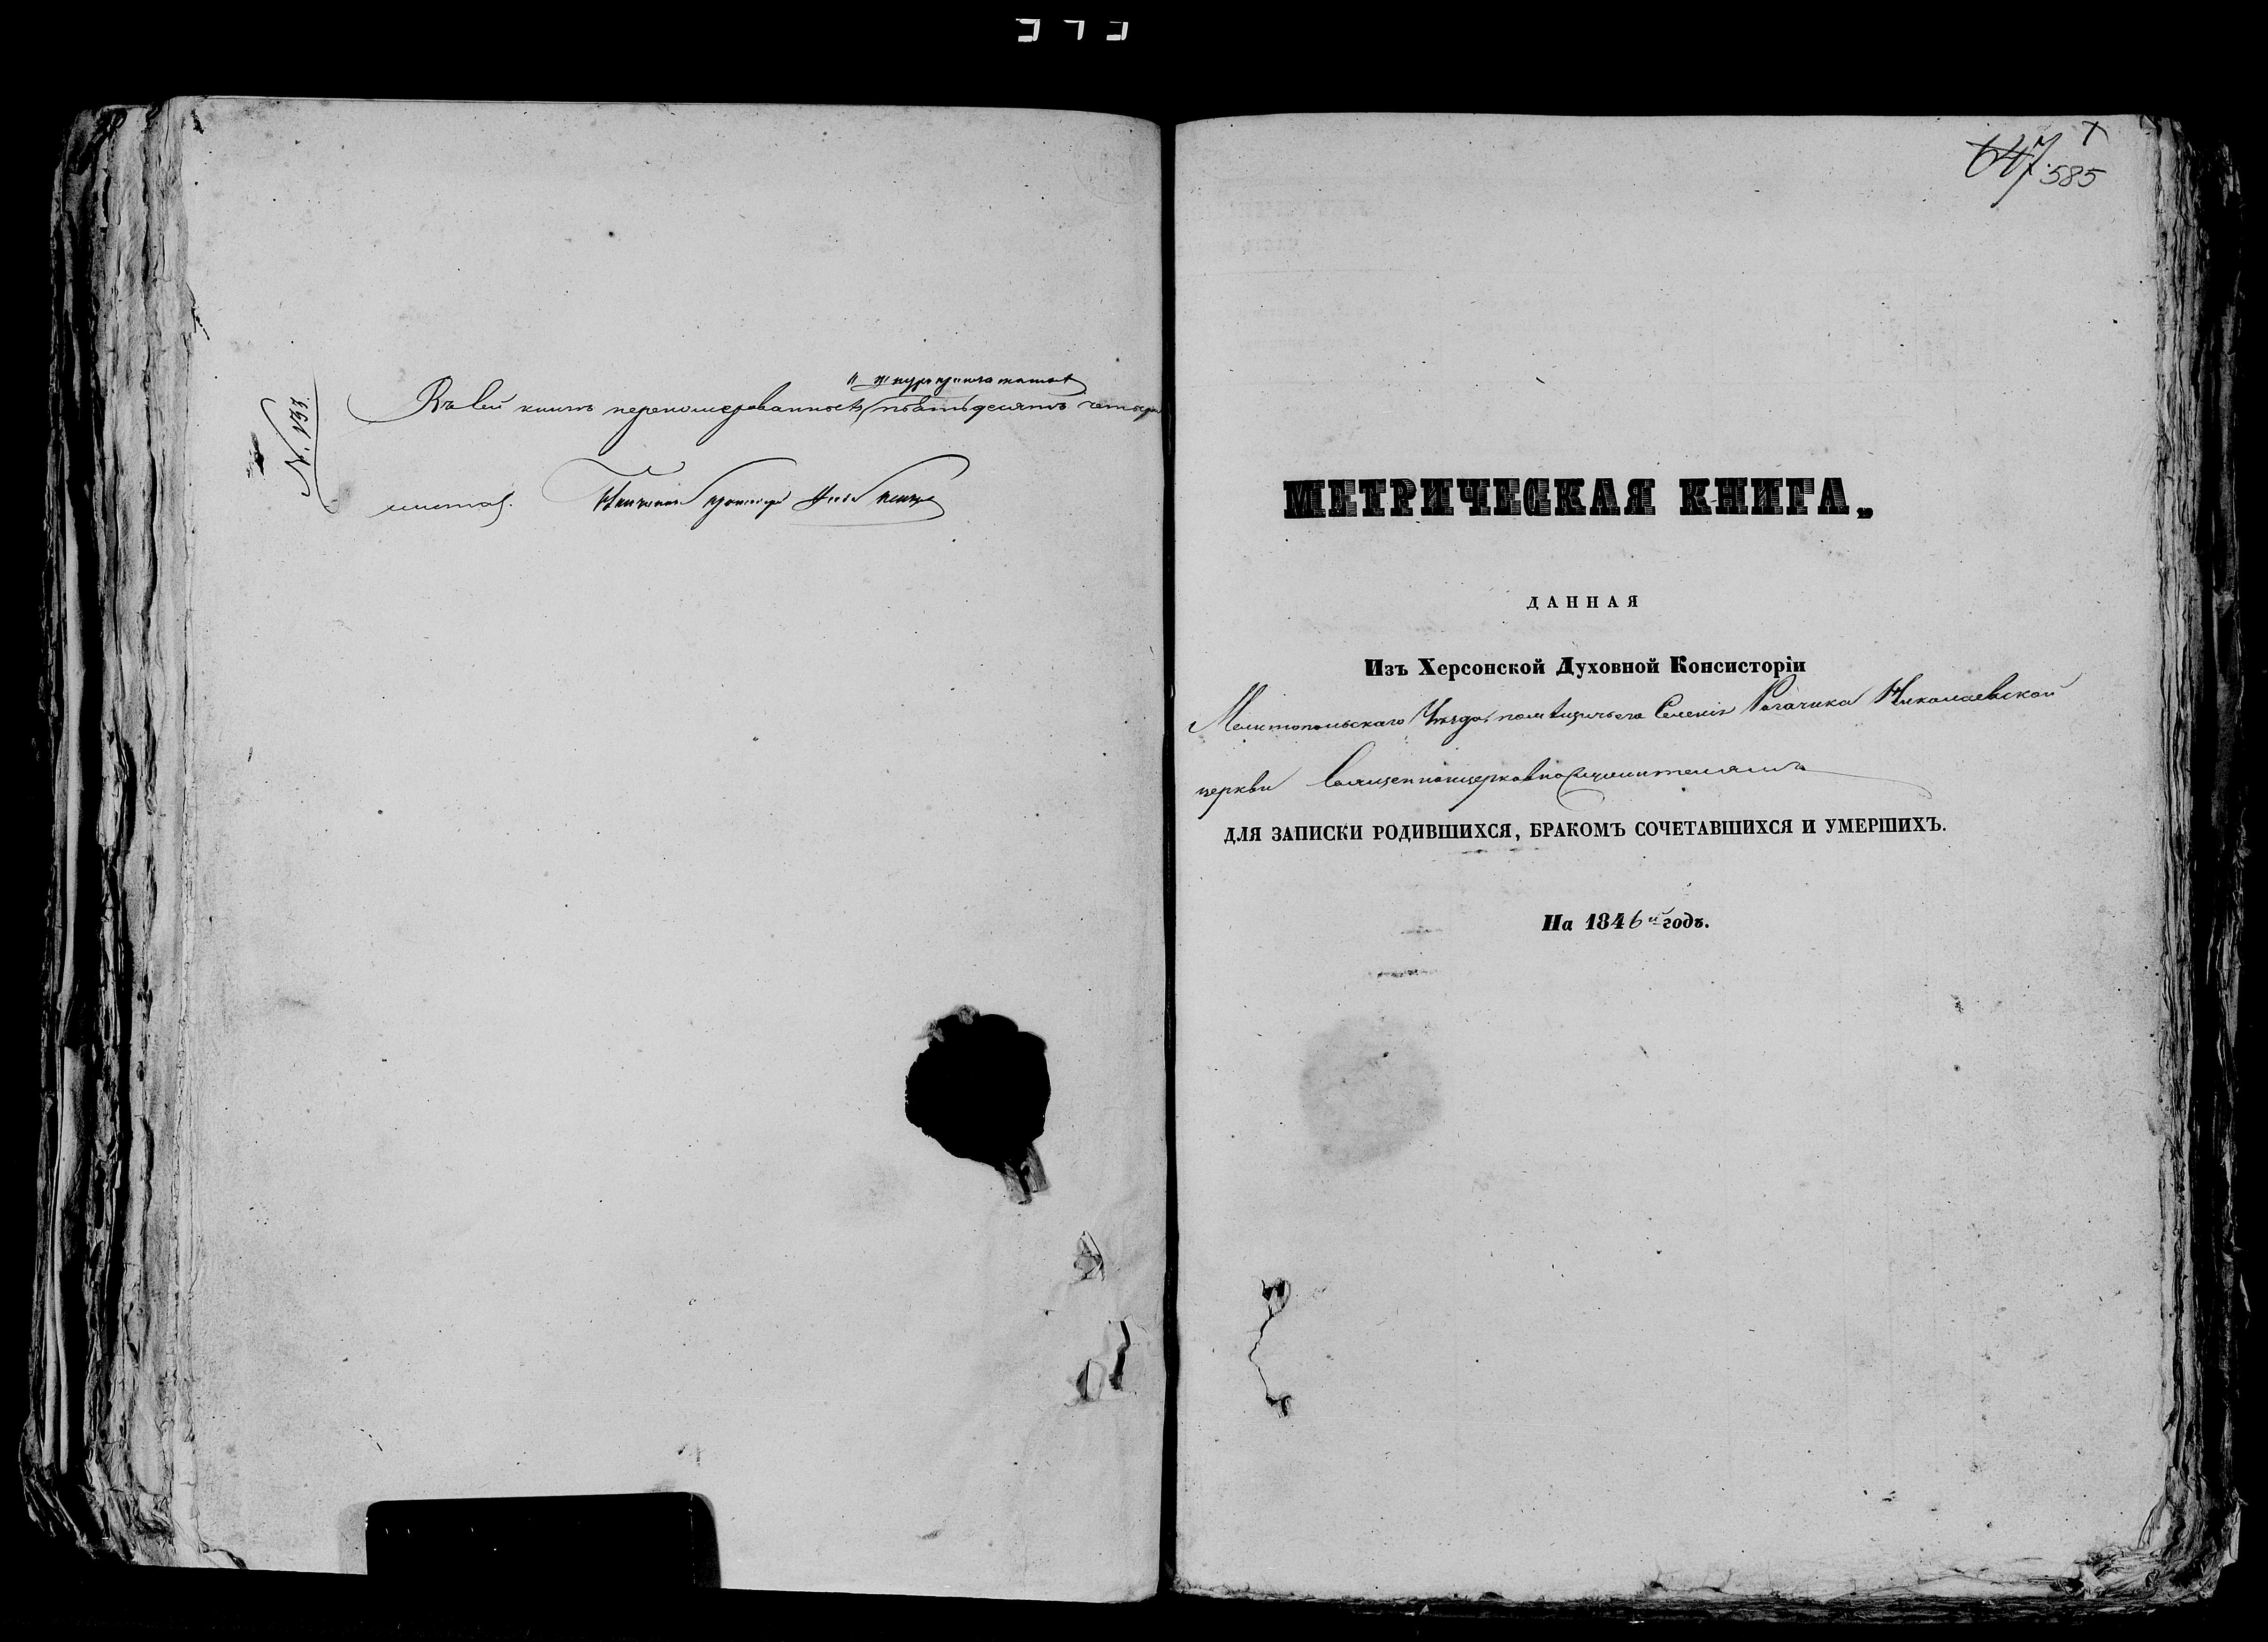 N. 133.
Въ сей книгѣ перенумерованной и шнуропечатной пятьдесятъ четыре
листа.
647 585
МЕТРИЧЕСКАЯ КНИГА,
ДАННАЯ
Изъ Херсонской Духовной Консисторіи
Мелитопольскаго Уѣзда, помѣщичьяго Селенія Рогачика Николаевской
церкви Священноцерковнослужителямъ
ДЛЯ ЗАПИСКИ РОДИВШИХСЯ, БРАКОМЪ СОЧЕТАВШИХСЯ И УМЕРШИХЪ.
На 1846й годъ.